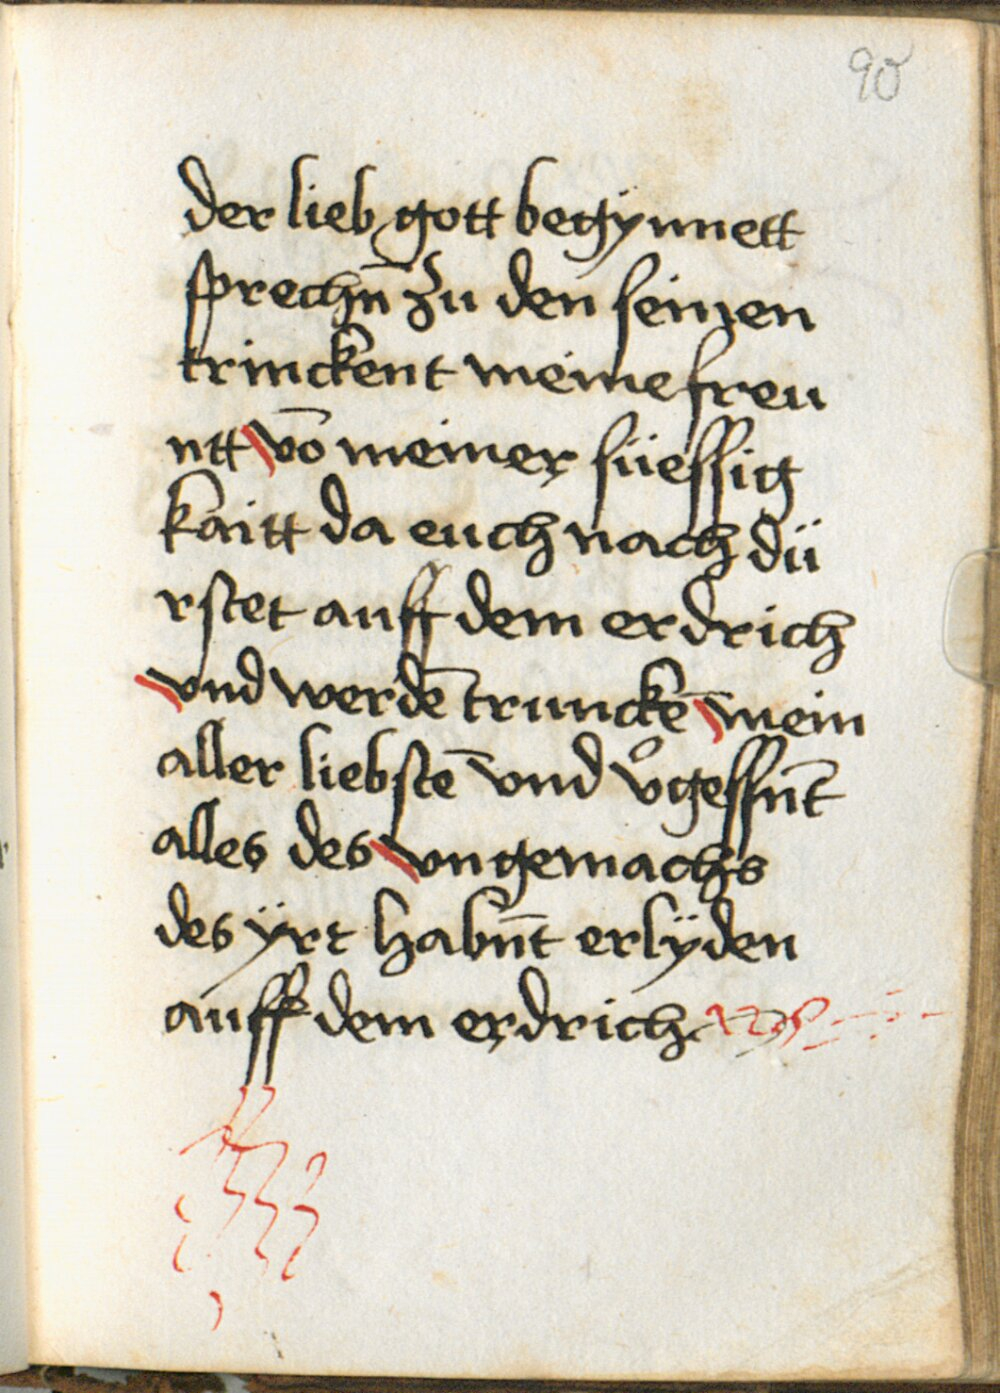 90
der lieb gott begÿnnett
sprechn̄ zu den seinen
trinckent meine freu
ntt vō meiner süessig
kaitt da euch nach dü
rstet auff dem erdrich
vnd werdē trunckē mein
aller liebstē vnd v᷎gessn̄t
alles des vngemachs
des ÿrt habn̄t erlÿden
auff dem erdrich